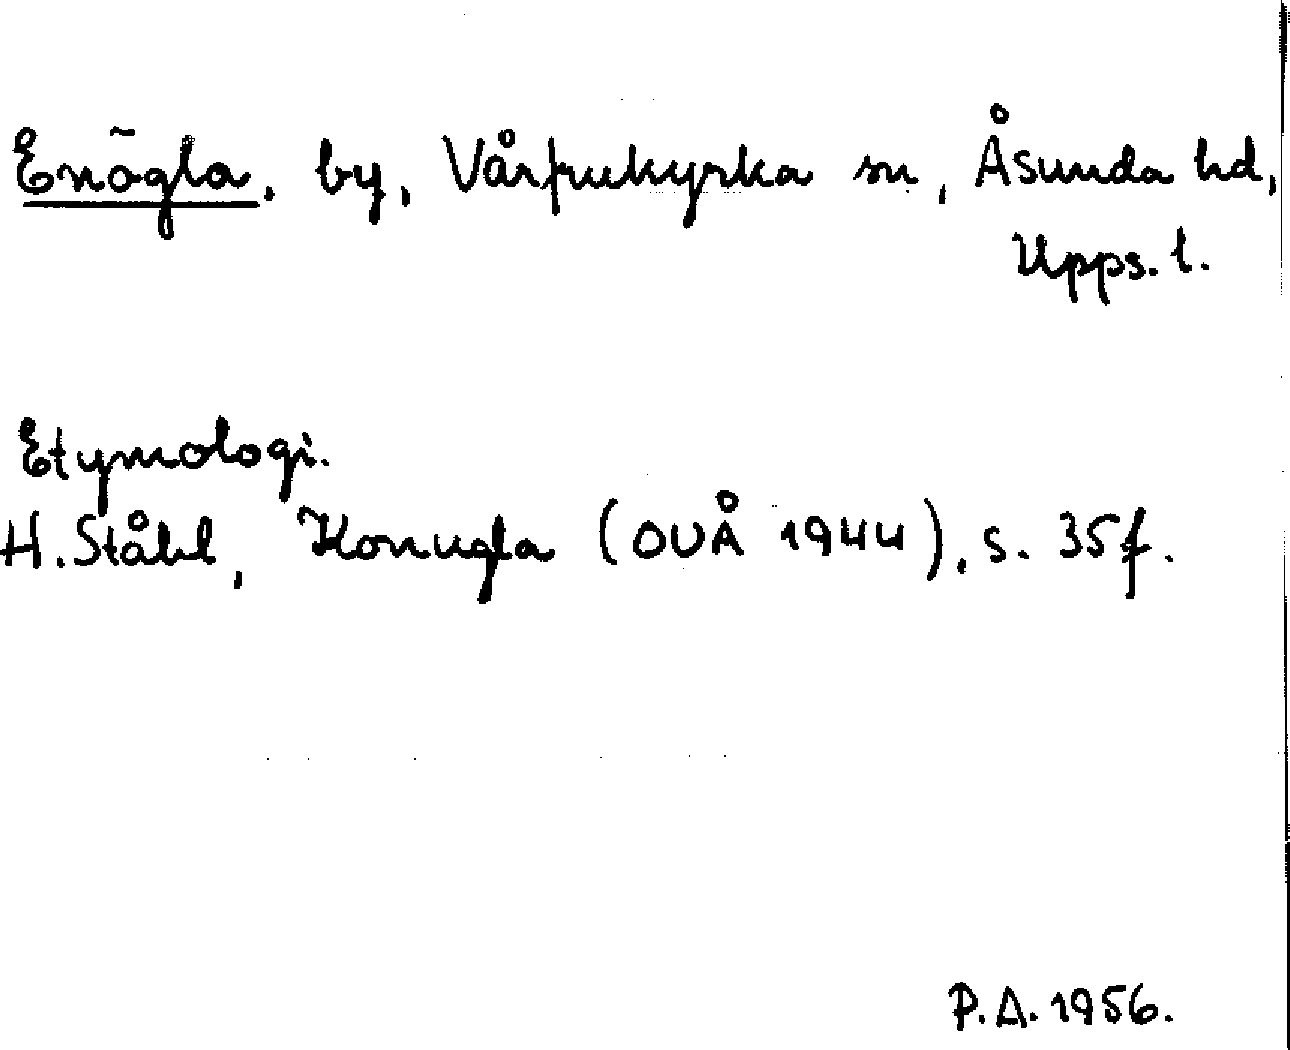 Enögla, by, Vårfrukyrka sn, Åsunda hd,
Upps. l.
Etymologi.
H. Ståhl, Konugla (OUÅ 1944), s. 35f.
P.A. 1956.